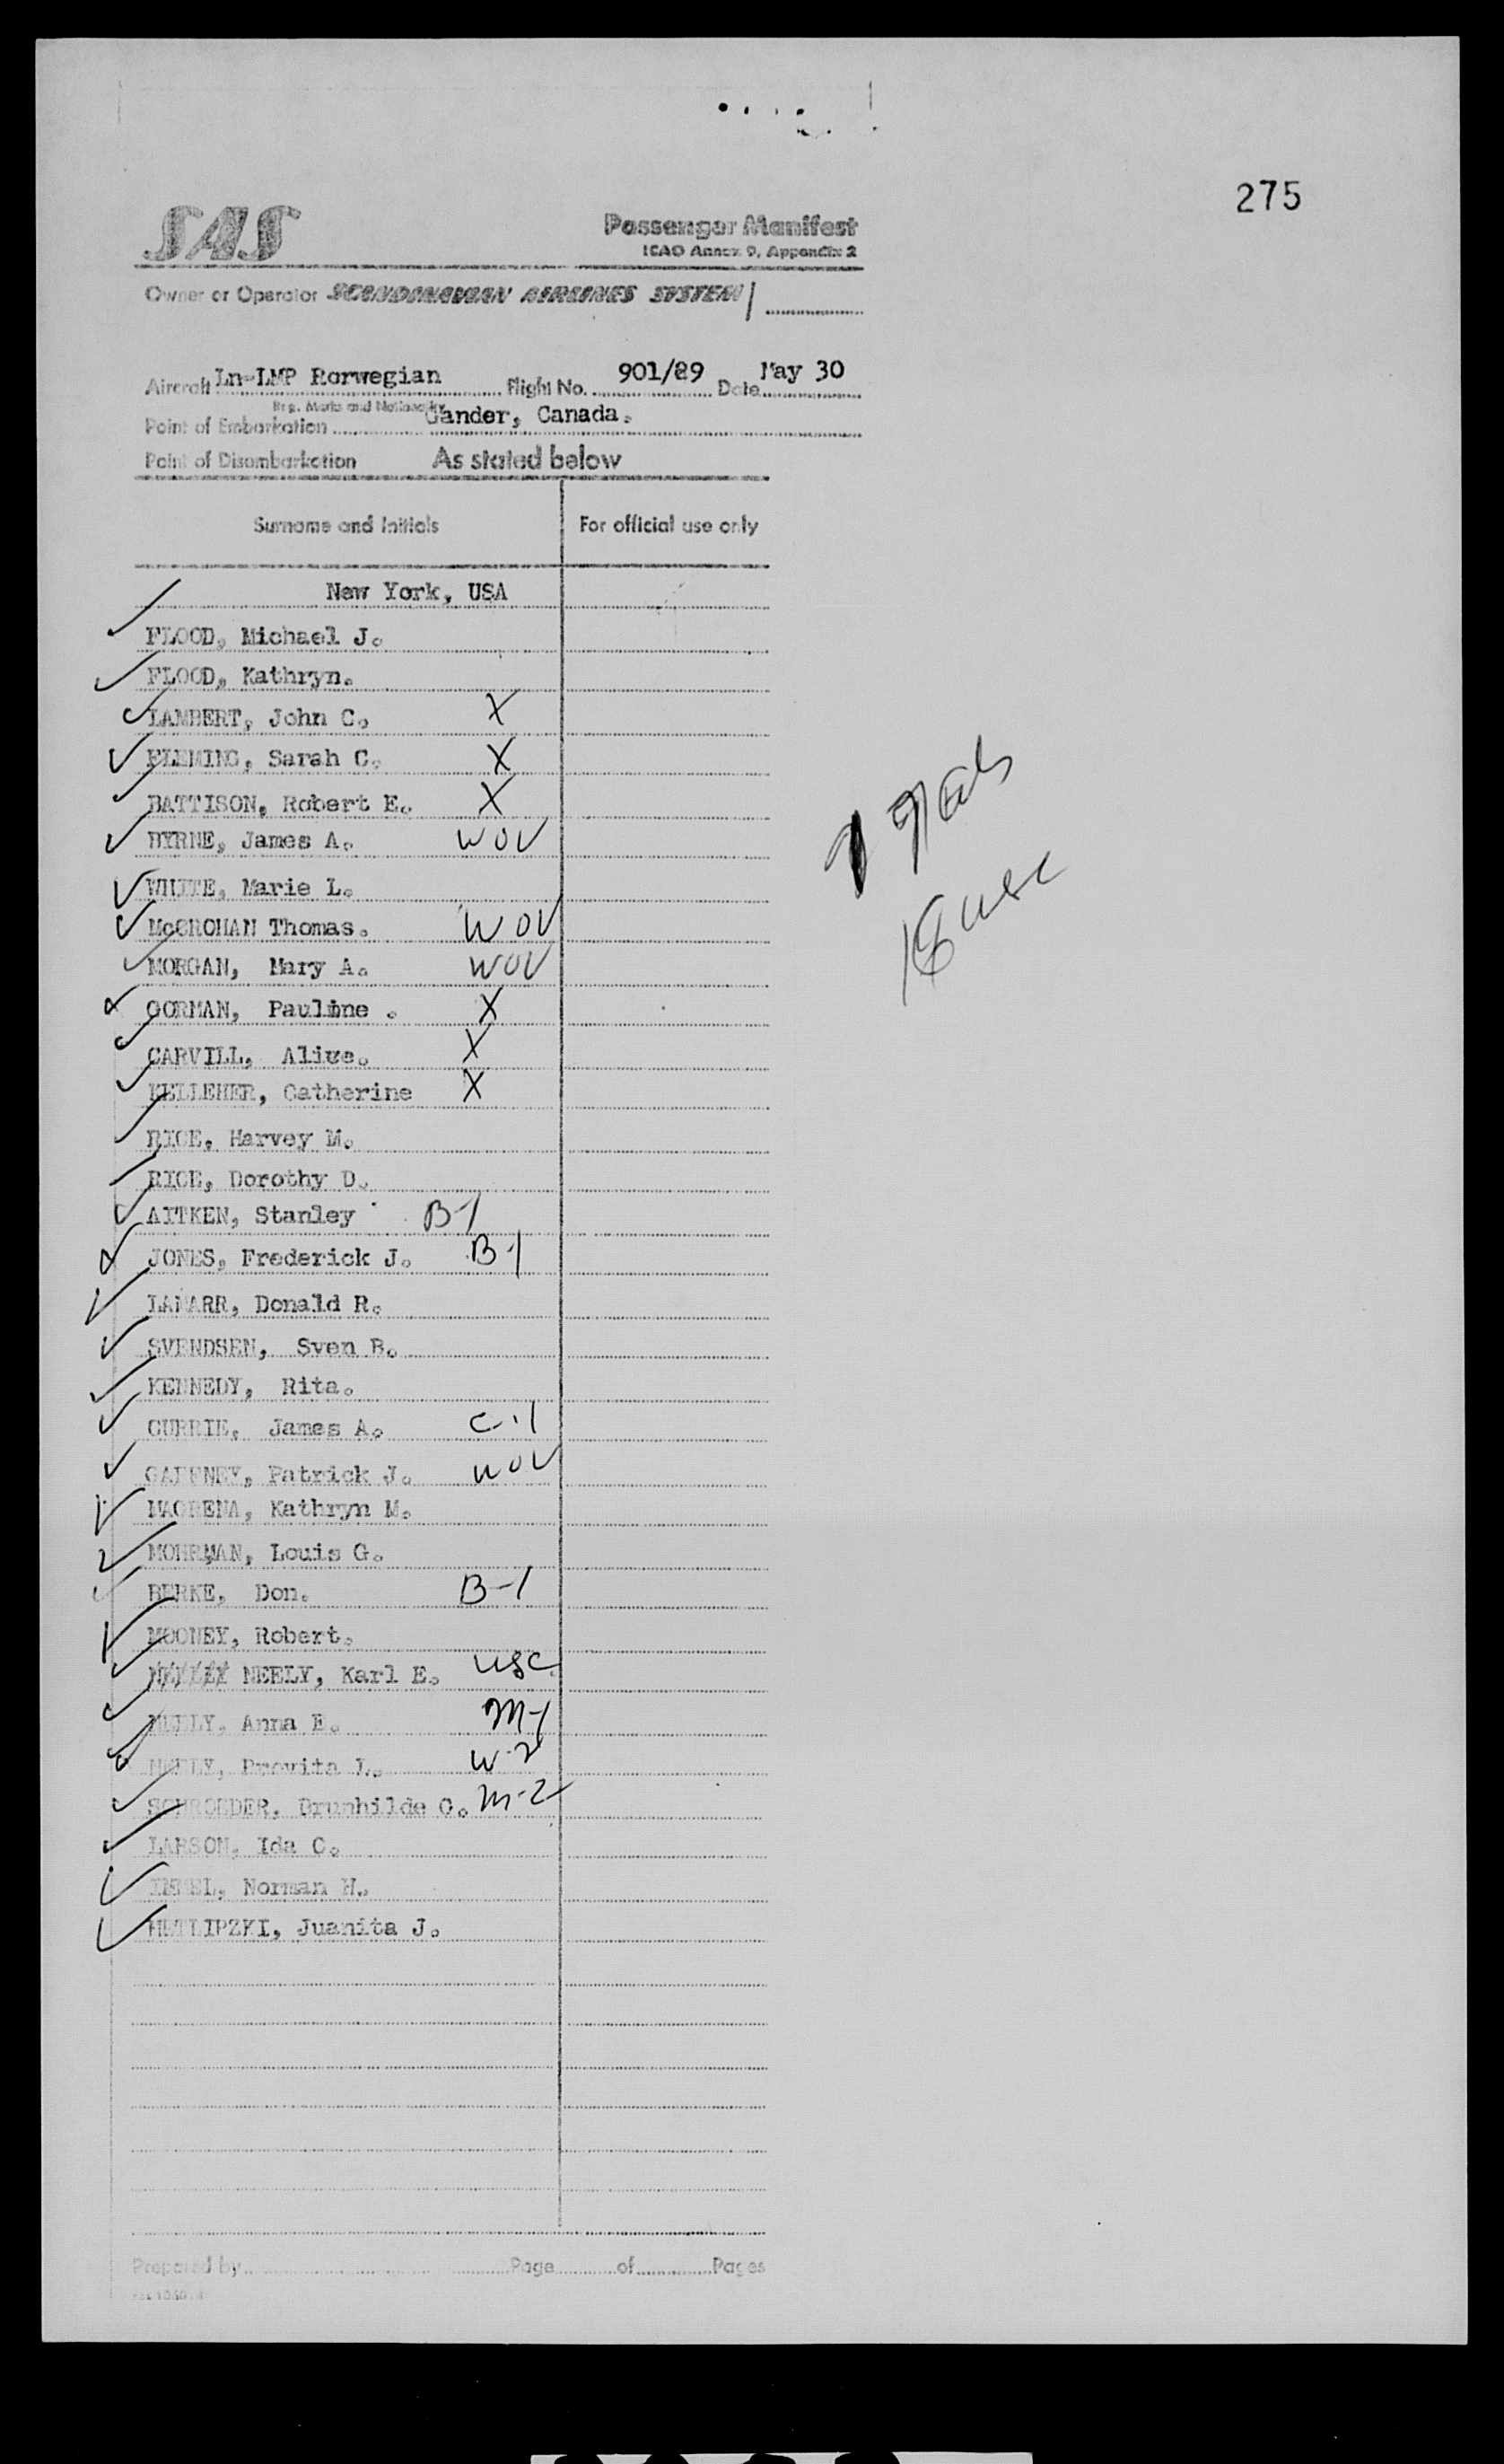 275
SAS
Passenger Manifest
ICAO Annex 9, Appendix 2
Owner or Operator SCANDINAVIAN AIRLINES SYSTEM
Aircraft Ln-LMP Rorwegian Flight No. 901/89 Date May 30
Reg. Marks and Nationality
Point of Embarkation Gander, Canada.
Point of Disembarkation As stated below
Surname and Initials For official use only
New York, USA
FLOOD, Michael J.
FLOOD, Kathryn.
LAMBERT, John C. X
FLEMING, Sarah C. X
BATTISON, Robert E. X
BYRNE, James A. WOV
WHITE, Marie L.
McCROHAN Thomas. WOV
MORGAN, Mary A. WOV
GORMAN, Pauline . X
CARVILL, Alice. X
KELLEHER, Catherine X
RICE, Harvey M.
RICE, Dorothy D.
AITKEN, Stanley B-1
JONES, Frederick J. B-1
LAMARR, Donald R.
SVENDSEN, Sven B.
KENNEDY, Rita.
CURRIE, James A. C-1
GAFFNEY, Patrick J. WOV
MAGRENA, Kathryn M.
MOHRMAN, Louis G.
BERKE, Don. B-1
MOONEY, Robert.
NEELY, Karl E. USC
NEELY, Anna E. M-1
NEELY, L. W-2
SCHROEDER, Brunhilde G. M-2
LARSON, Ida C.
Norman H.
METLIPZKI, Juanita J.
Prepared by Page of Pages